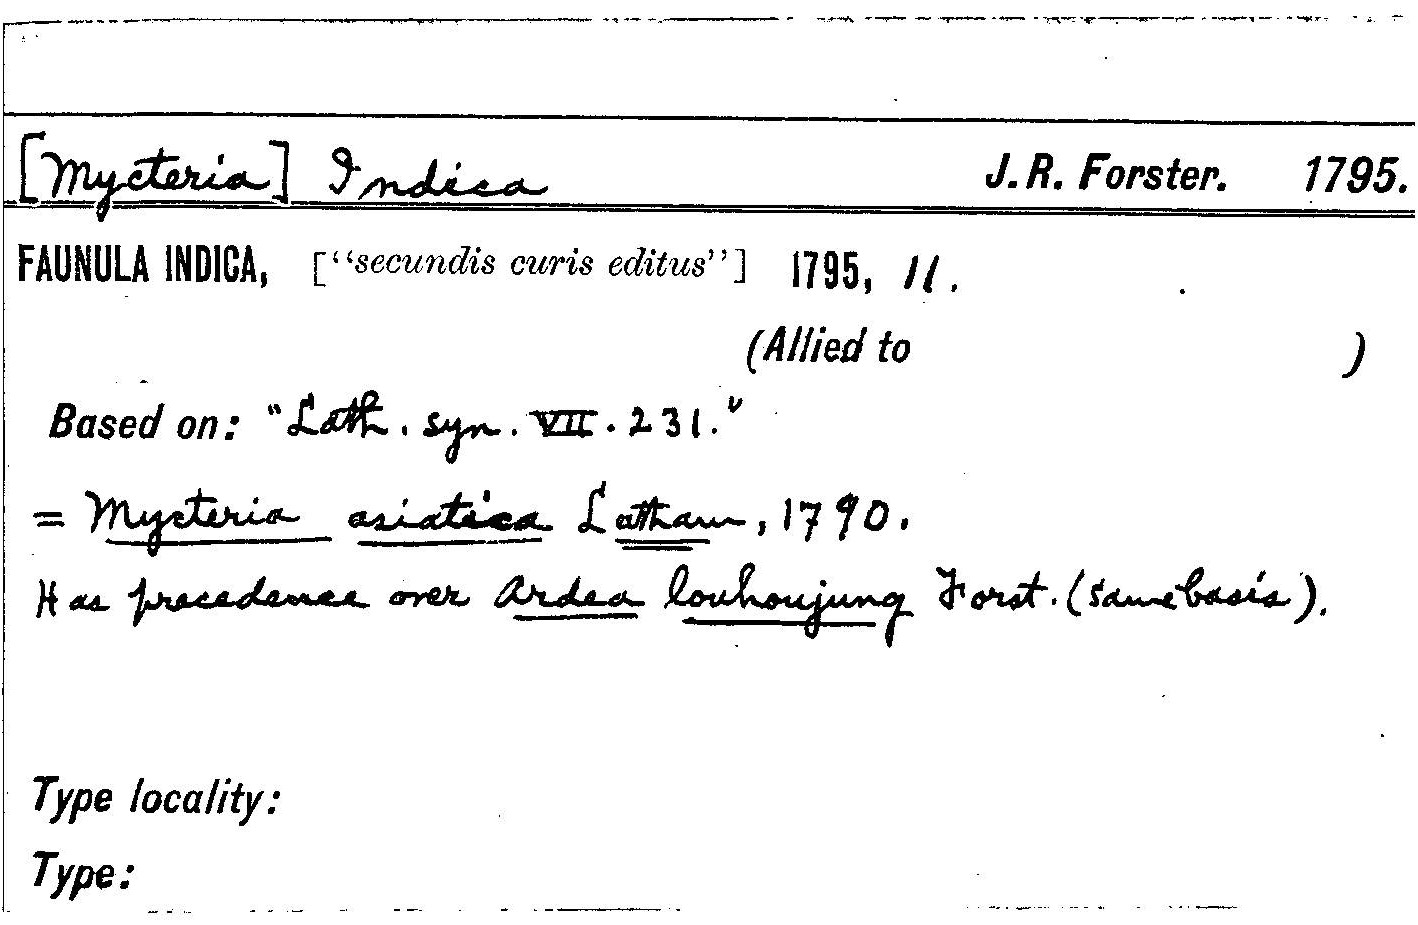 [Mycteria] Indica J. R. Forster. 1795.
FAUNULA INDICA, ["secundis curis editus"] 1795, 11.
(Allied to )
Based on: "Lath. syn. VII. 231."
= Mycteria asiatica Latham, 1790.
Has precedence over Ardea louhoujung Forst. (same basis).
Type locality:
Type: